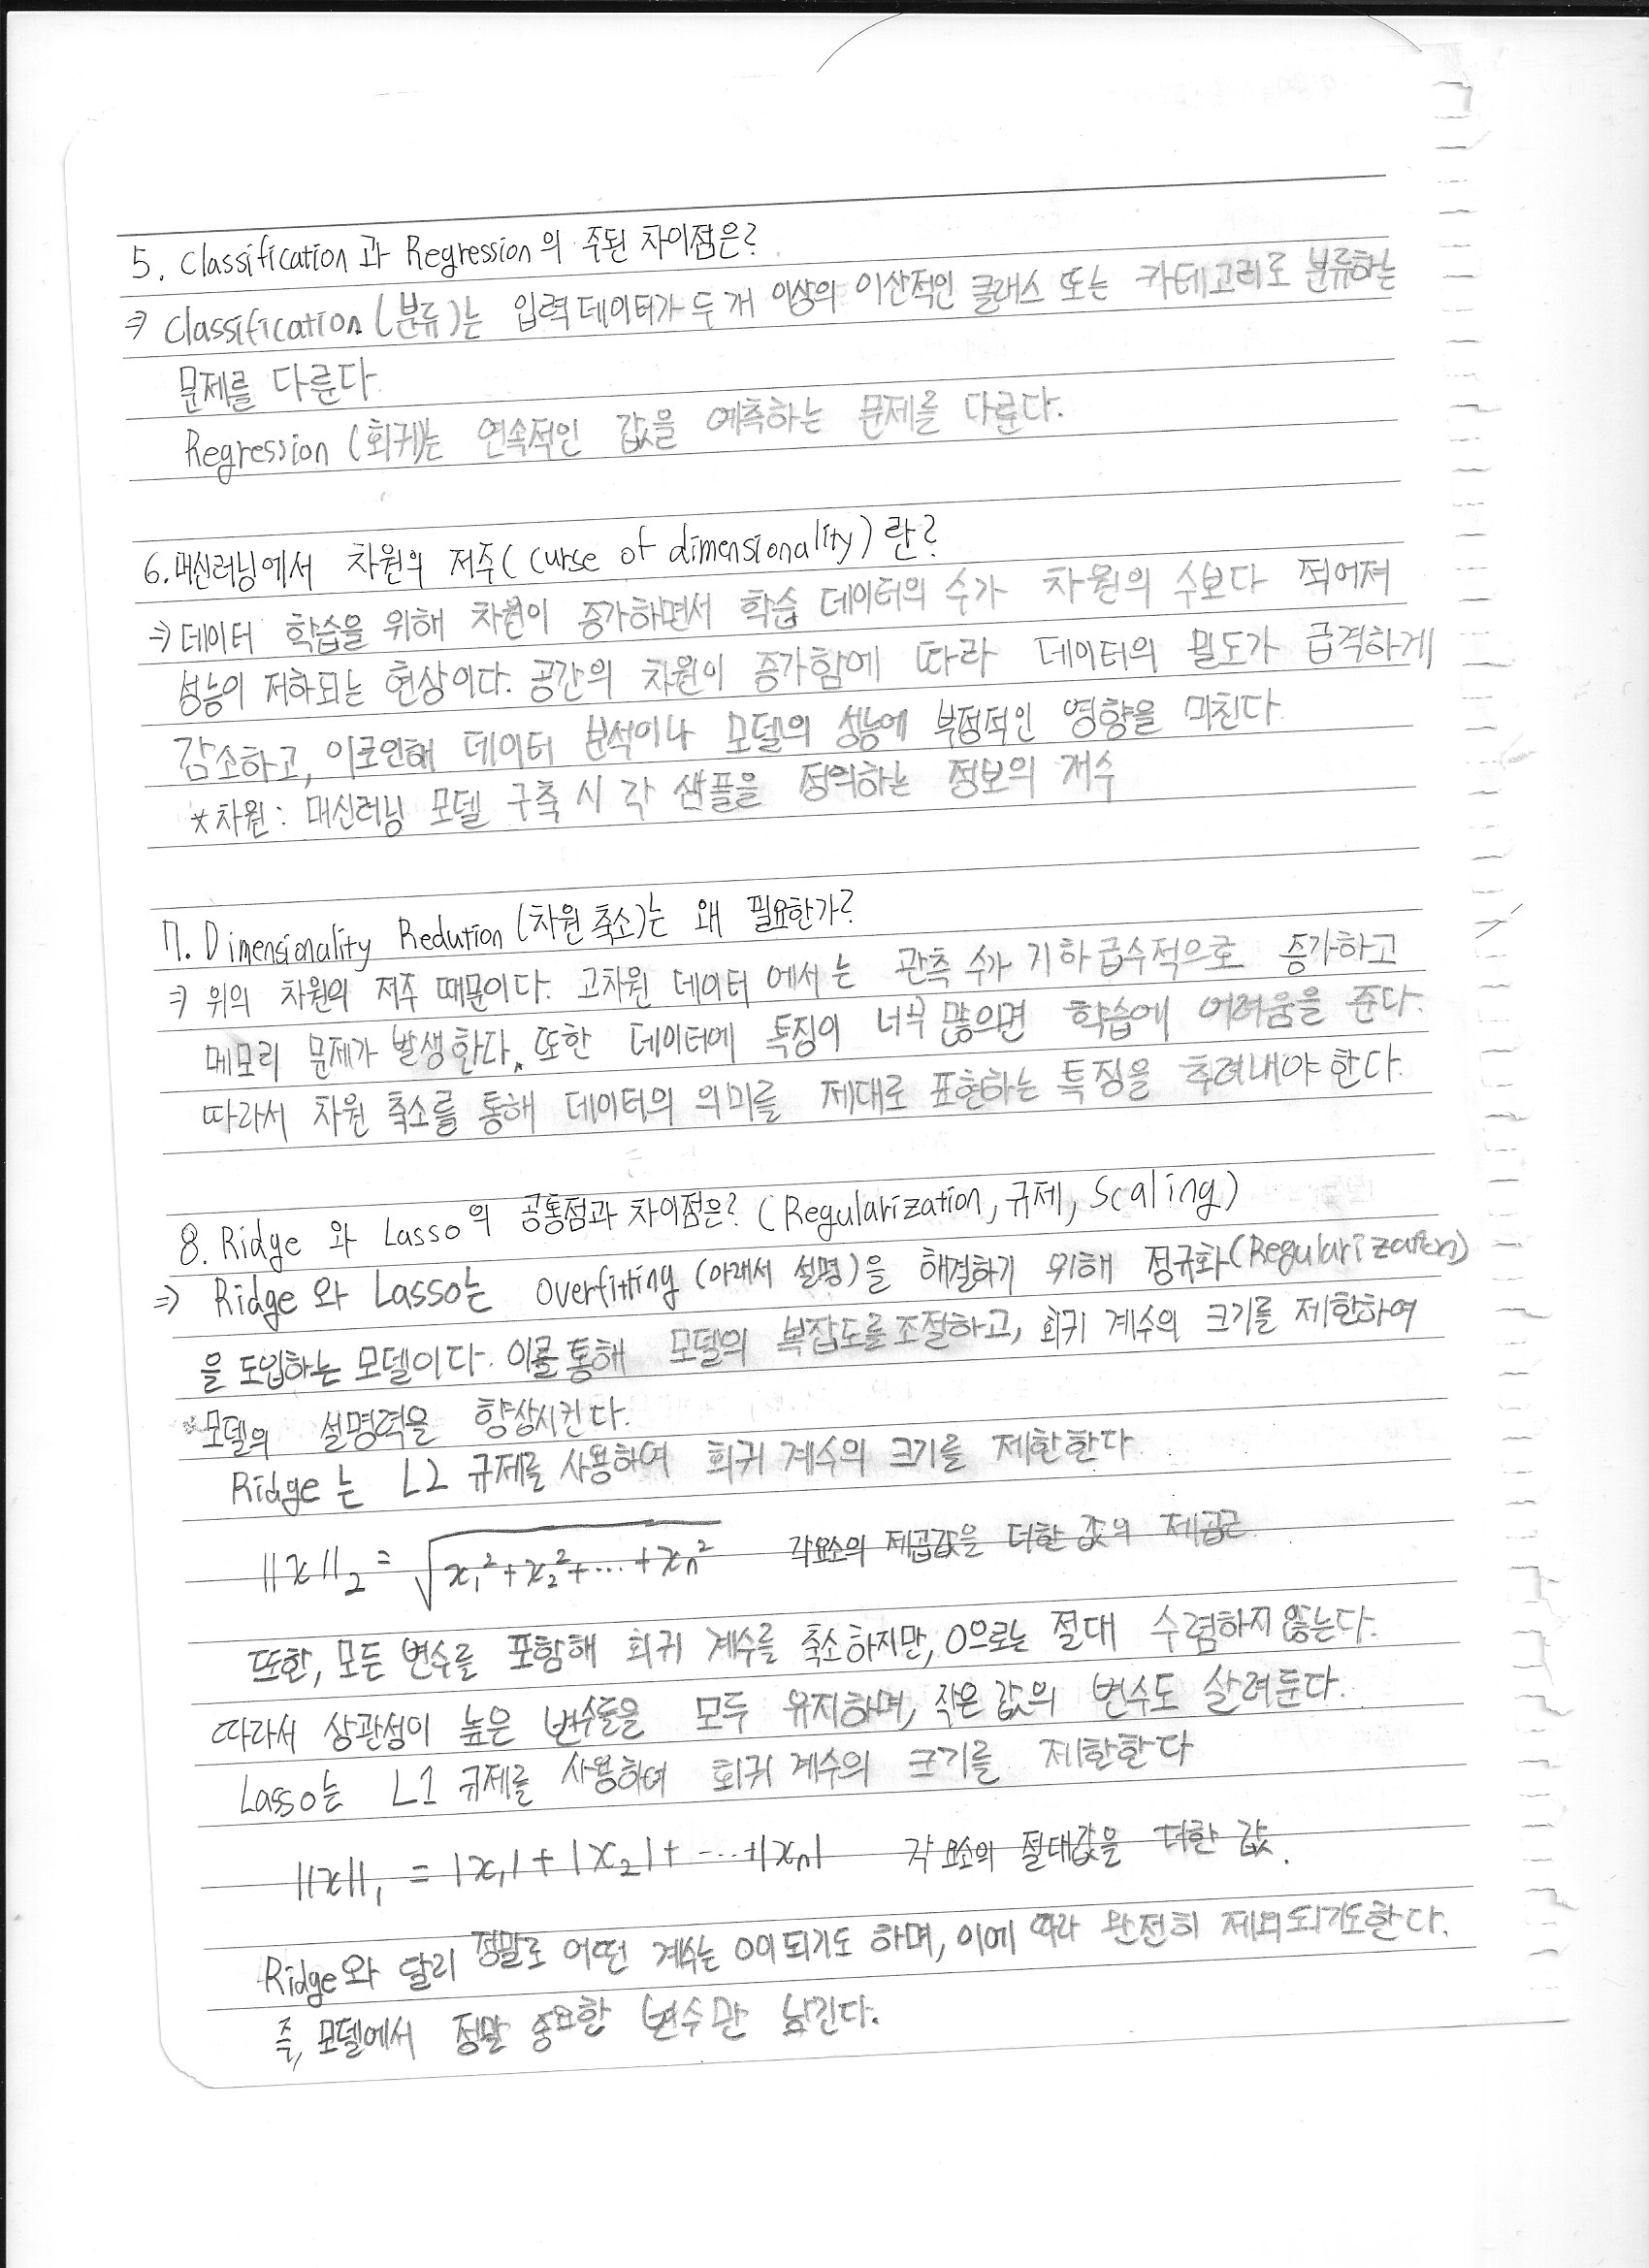 5. Classification과 Regression의 주된 차이점은?
⇒ Classification(분류)는 입력 데이터가 두 개 이상의 이산적인 클래스 또는 카테고리로 분류하는
문제를 다룬다.
Regression (회귀)는 연속적인 값을 예측하는 문제를 다룬다.
6. 머신러닝에서 차원의 저주(curse of dimensionality)란?
⇒ 데이터 학습을 위해 차원이 증가하면서 학습 데이터의 수가 차원의 수보다 적어져
성능이 저하되는 현상이다. 공간의 차원이 증가함에 따라 데이터의 밀도가 급격하게
감소하고, 이로인해 데이터 분석이나 모델의 성능에 부정적인 영향을 미친다
*차원: 머신러닝 모델 구축 시 각 샘플을 정의하는 정보의 개수
7. Dimensionality Redution (차원 축소)는 왜 필요한가?
⇒ 위의 차원의 저주 때문이다. 고차원 데이터 에서는 관측 수가 기하급수적으로 증가하고
메모리 문제가 발생한다. 또한 데이터에 특징이 너무 많으면 학습에 어려움을 준다.
따라서 차원 축소를 통해 데이터의 의미를 제대로 표현하는 특징을 추려내야 한다.
8. Ridge 와 Lasso의 공통점과 차이점은? (Regularization, 규제, Scaling)
⇒ Ridge 와 Lasso는 Overfitting (아래서 설명)을 해결하기 위해 정규화(Regularization)
을 도입하는 모델이다. 이를 통해 모델의 복잡도를 조절하고, 회귀 계수의 크기를 제한하여
모델의 설명력을 향상시킨다.
Ridge 는 L2 규제를 사용하여 회귀 계수의 크기를 제한한다
||x||₂ = √(x₁² + x₂² + ... + xₙ²) 각요소의 제곱값을 더한 값의 제곱근
또한, 모든 변수를 포함해 회귀 계수를 축소하지만, 0으로는 절대 수렴하지 않는다.
따라서 상관성이 높은 변수들을 모두 유지하며, 작은 값의 변수도 살려둔다.
Lasso는 L1 규제를 사용하여 회귀 계수의 크기를 제한한다
||x||₁ = |x₁| + |x₂| + ... + |xₙ| 각 요소의 절대값을 더한 값.
Ridge와 달리 정말로 어떤 계수는 0이 되기도 하며, 이에 따라 완전히 제외되기도한다.
즉, 모델에서 정말 중요한 변수만 남긴다.